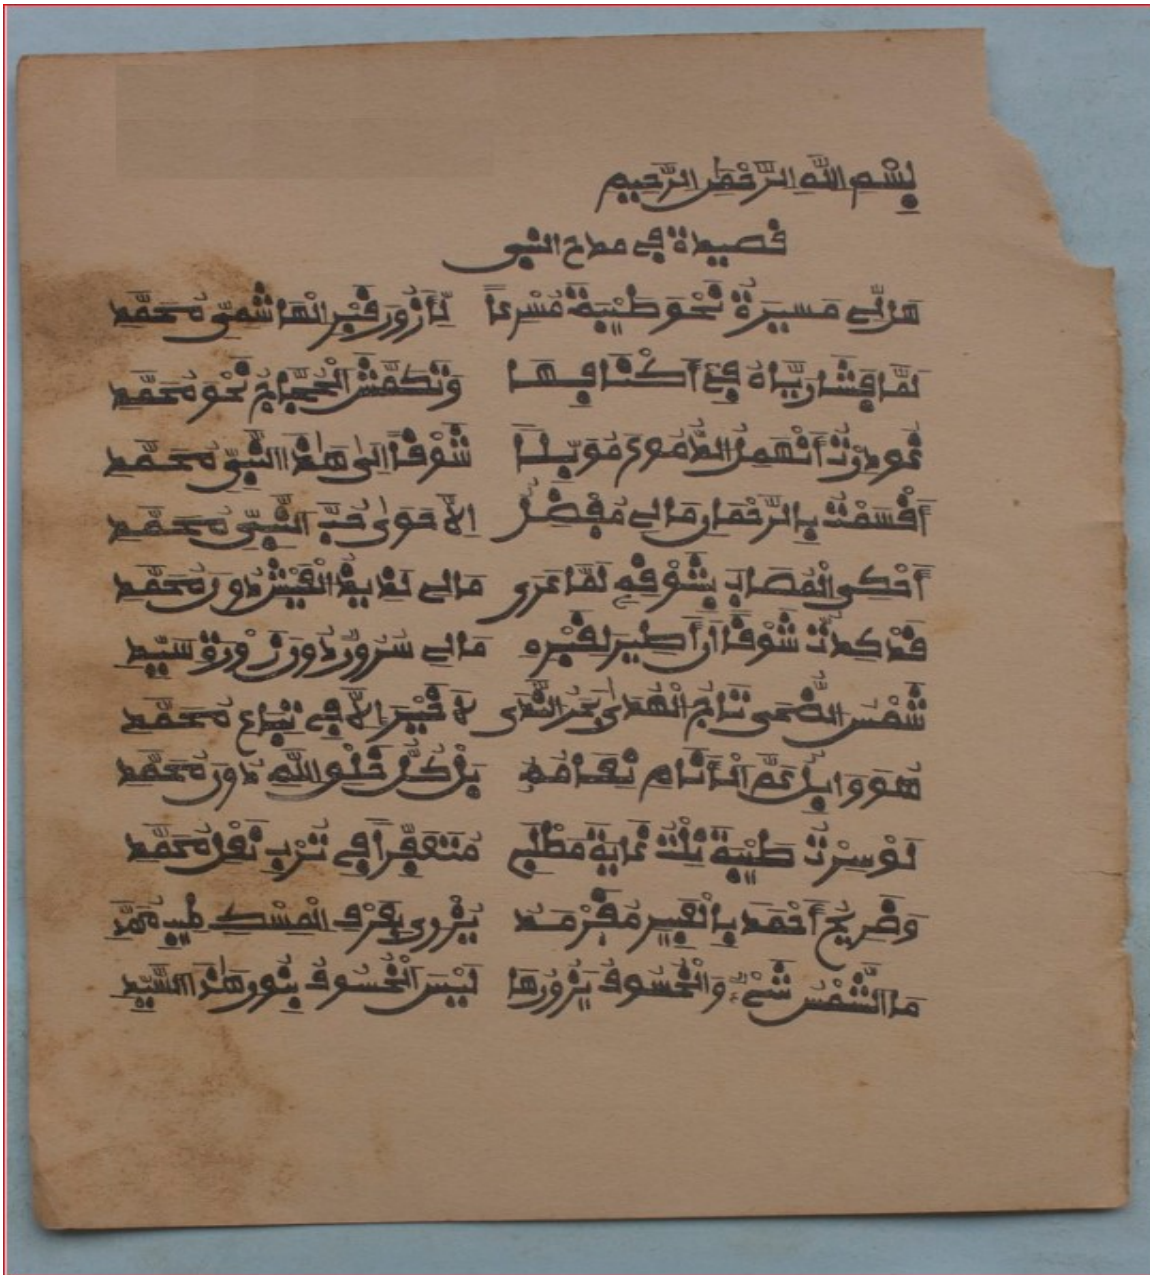 بِسْمِ اللَّهِ الرَّحْمَٰنِ الرَّحِيمِ
قصيدة في مدح النبي
هَلْ لِي مَسِيرَةٌ نَحْوَ طَيْبَةَ مُسْرِعًا لِأَزُورَ قَبْرَ الْهَاشِمِيِّ مُحَمَّدِ
لَمَّا فَشَا رَيَّاهُ فِي أَكْنَافِهَا وَتَكَمَّشَ الْحُجَّاجُ نَحْوَ مُحَمَّدِ
غُودِرْتُ أَنْهَمِلُ الدُّمُوعَ مُوَبَّلًا شَوْقًا إِلَىٰ هَٰذَا النَّبِيِّ مُحَمَّدِ
أَقْسَمْتُ بِالرَّحْمَانِ مَا لِي مَفْضَلٌ إِلَّا حَوَىٰ حُبَّ النَّبِيِّ مُحَمَّدِ
أَحْكِي الْمُصَابَ بِشَوْقِهِ لَمَّا عَرَى مَا لِي لَذِيذُ الْعَيْشِ دُونَ مُحَمَّدِ
قَدْ كِدْتُ شَوْقًا أَنْ أَطِيرَ لِقَبْرِهِ مَا لِي سُرُورٌ دُونَ زَوْرَةِ سَيِّدِ
شَمْسُ الضُّحَى تَاجُ الْهُدَىٰ بَحْرُ النَّدَى لَا خَيْرَ إِلَّا فِي تِبَاعِ مُحَمَّدِ
هُوَ وَابِلٌ عَمَّ الْأَنَامَ نِعَامُهُ بَلْ كُلُّ خَلْقِ اللَّهِ دُونَ مُحَمَّدِ
لَوْ سِرْتُ طَيْبَةَ نِلْتُ غَايَةَ مَطْلَبِي مُتَعَفِّرًا فِي تُرْبِ نَعْلِ مُحَمَّدِ
وَضَرِيحُ أَحْمَدَ بِالْعَبِيرِ مُقَرْمَدٌ يُزْرِي بِعَرْفِ الْمِسْكِ طِيبُ مُحَمَّدِ
مَا الشَّمْسُ شَيْءٌ وَالْخُسُوفُ يَزُورُهَا لَيْسَ الْخُسُوفُ بِنُورِ هَٰذَا السَّيِّدِ